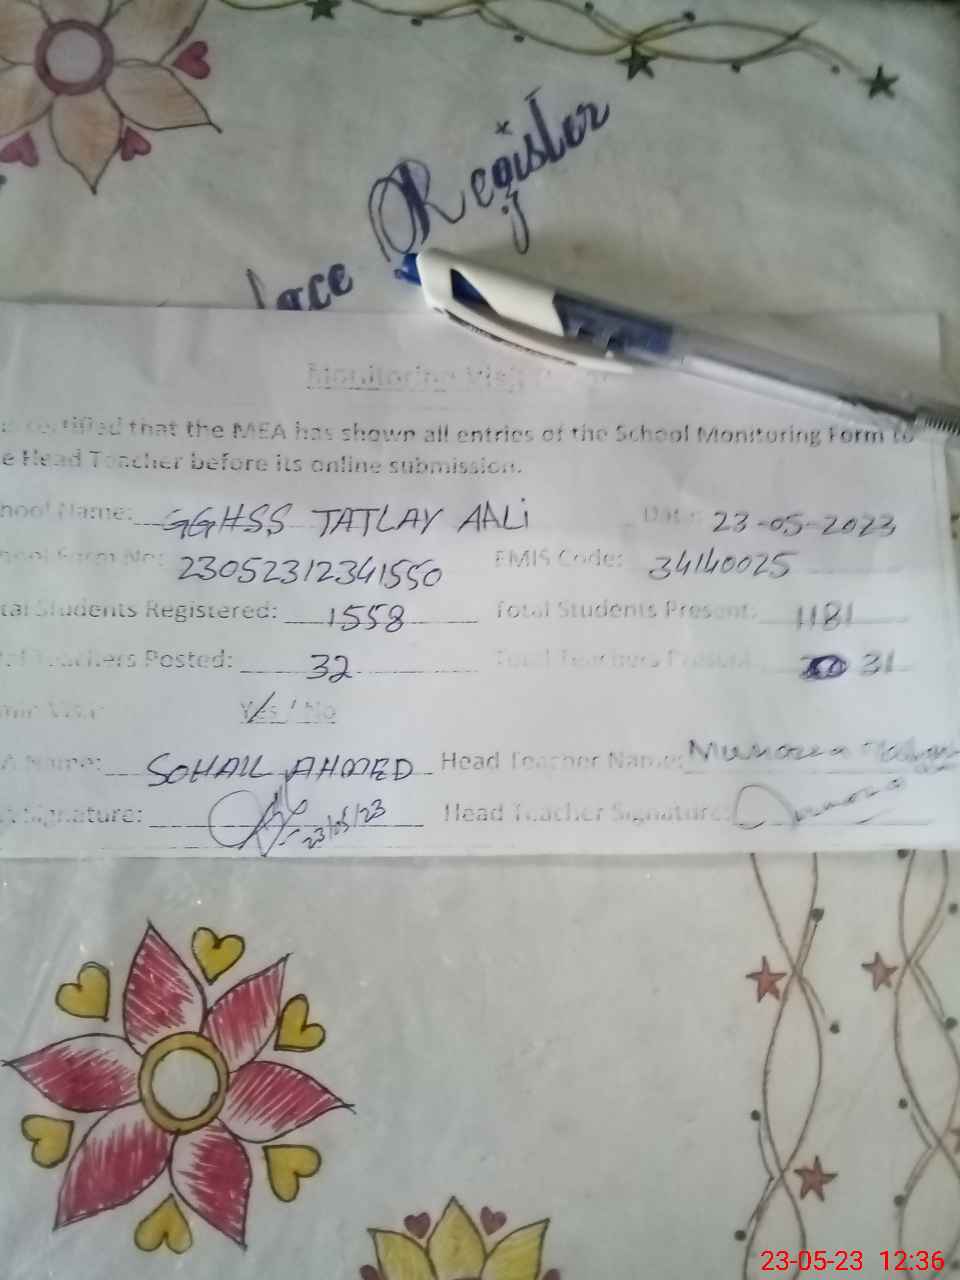 Register
lace
Monitoring Visit
certified that the MEA has shown all entries of the School Monitoring Form to
e Head Teacher before its online submission.
hool Name: GGHSS TATLAY AALi Date: 23-05-2023
hool Form No: 23052312341550 EMIS Code: 34140025
tal Students Registered: 1558 Total Students Present: 1181
Teachers Posted: 32 Total Teachers Present 31
Visit Yes / No
A Name: SOHAIL AHMED Head Teacher Name:
Signature: 23/05/23 Head Teacher Signature:
23-05-23 12:36